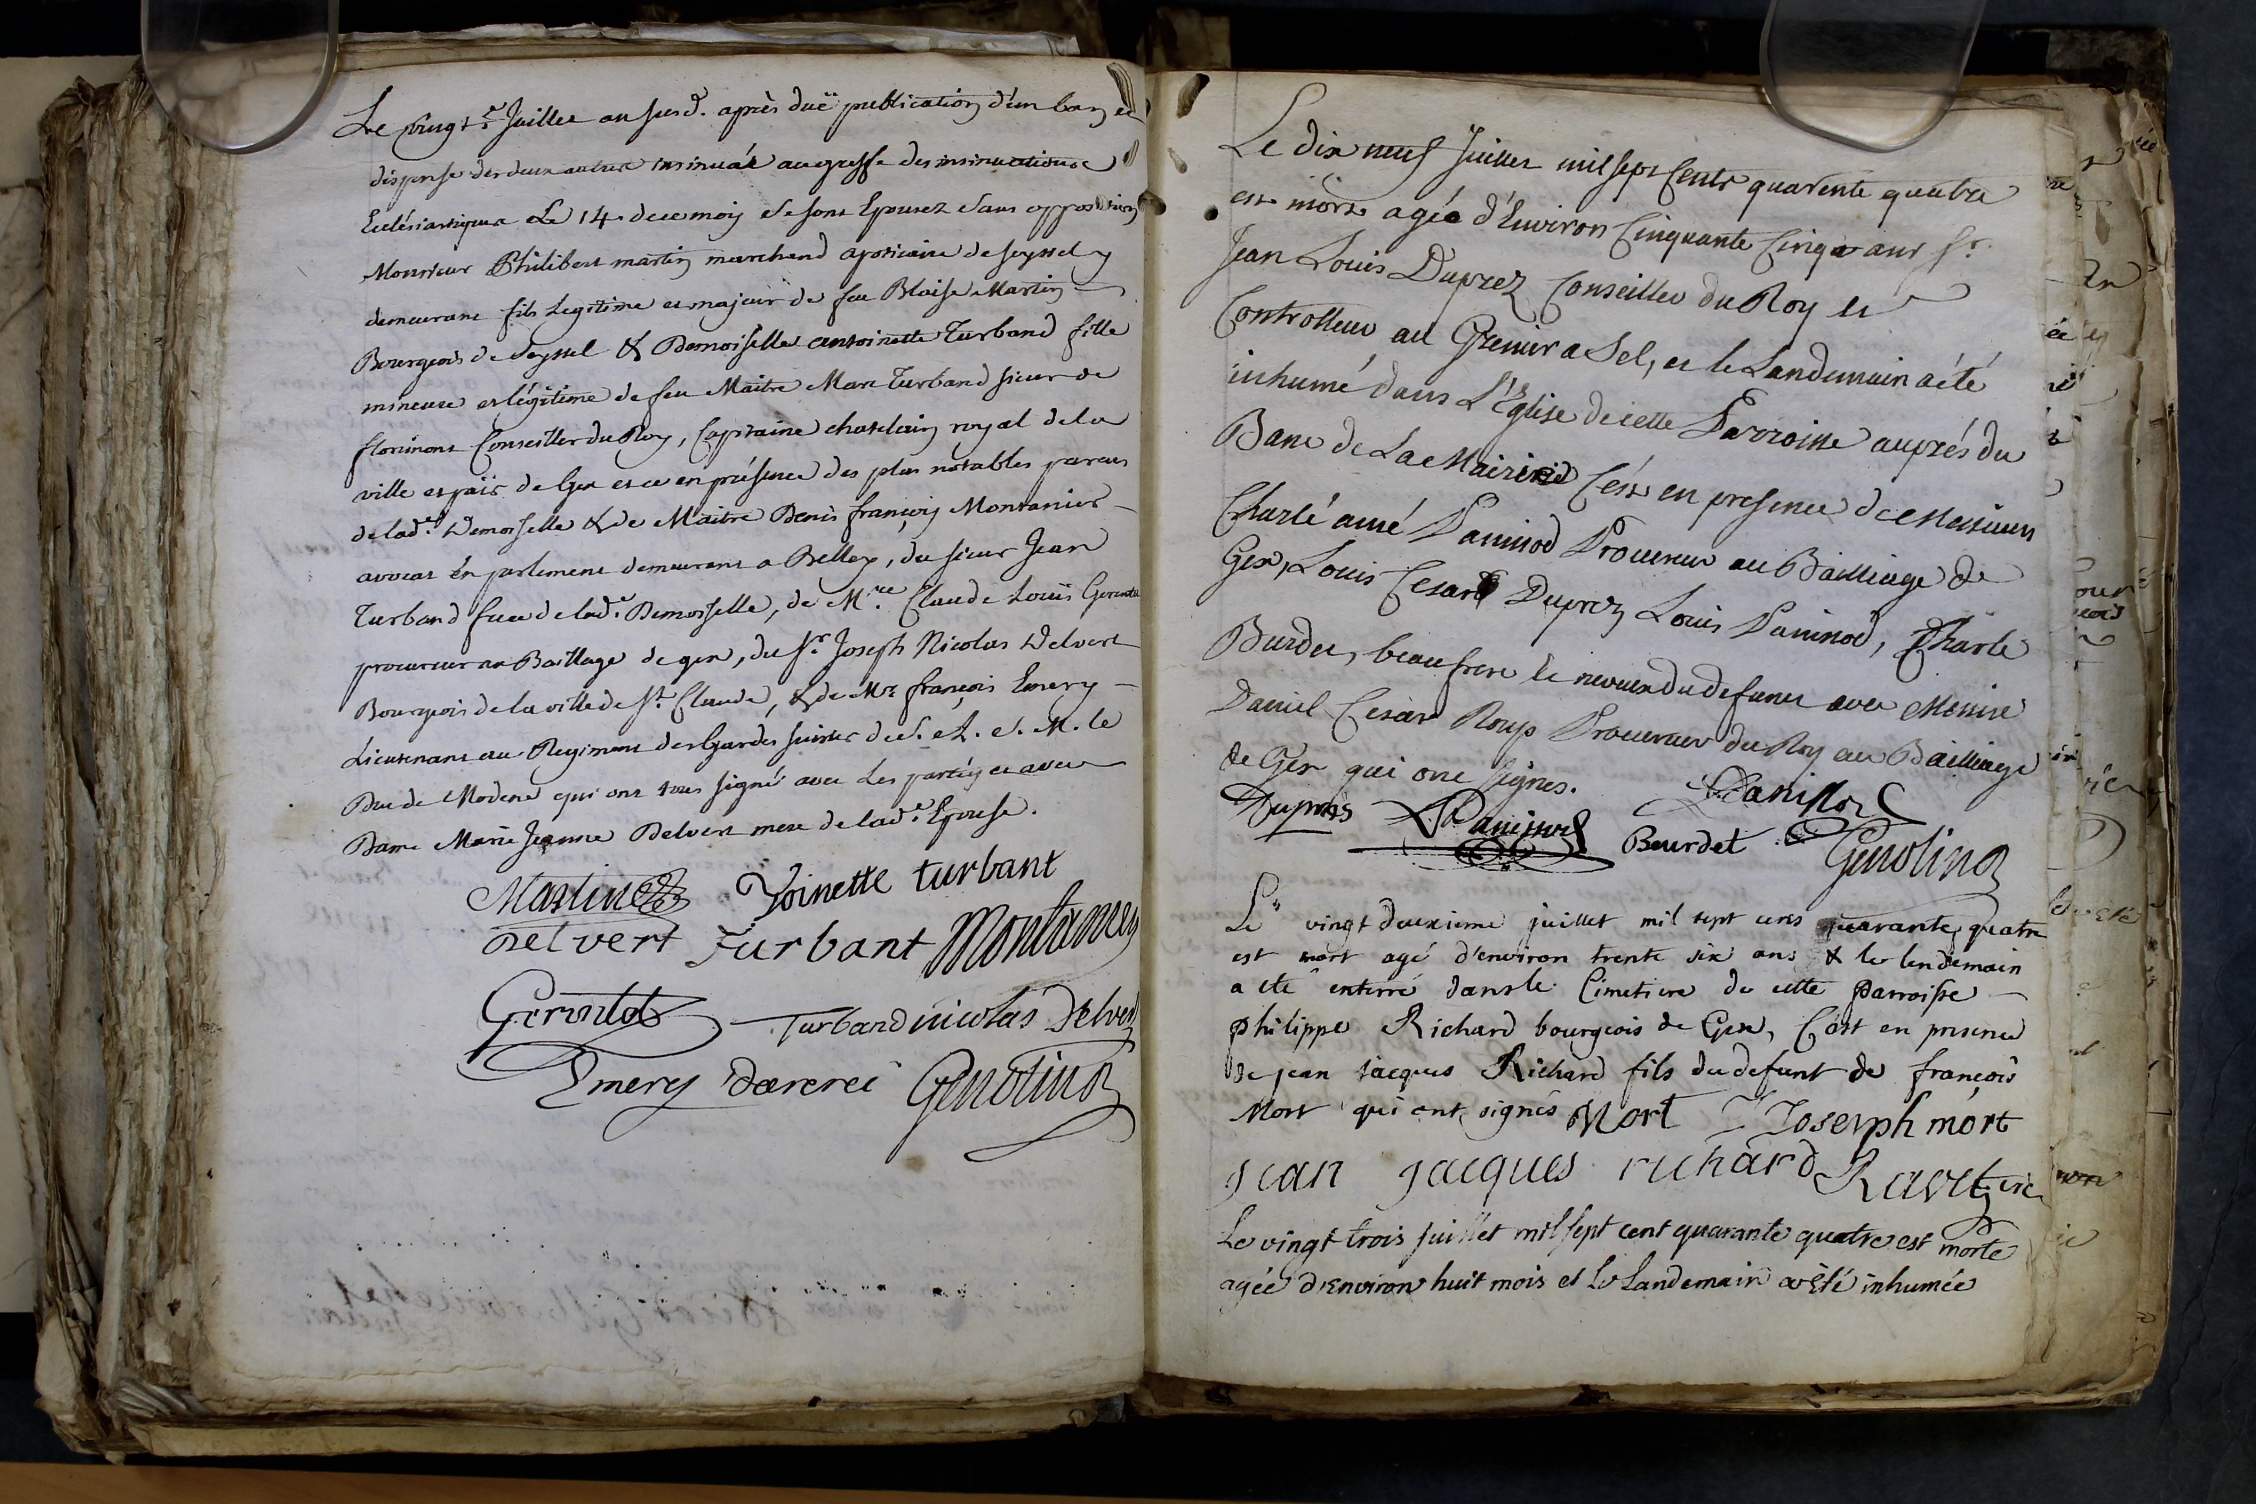 Le vingt.e Juillet an susd. après duë publication d'un ban et
dispense des deux autres insinuée au greffe des insinuations
Eclésiastiques Le 14. de ce mois Se sont Epousez Sans opposition
Monsieur Philibert martin marchand apoticaire de seyssel y
demeurant fils Legitime et majeur de feu Blaise Martin
Bourgeois de Seyssel & Demoiselle antoinette Turband fille
mineure et légitime de feu Maitre Marc Turband sieur de
florimont Conseiller du Roy, Capitaine chatelain royal de la
ville et païs de Gex et ce en présence des plus notables parens
de lad.e Demoiselle & de Maitre Denis françois Montanier
avocat én parlement demeurant a Belley, du sieur Jean
Turband frere de lad.e Demoiselle, de M.re Claude Louïs
procureur au Baillage de gex, du Sr. Joseph Nicolas Delvert
Bourgeois de la ville de St. Claude, & de Mr françois Emery
Lieutenant au Regiment des Gardes suisses de S. A. S. M. le
Duc de Modene qui ont tous signé avec Les parties et avec
Dame Marie Jeanne Delvert mere de lad.e Epouse.
Martin Toinette turbant
Delvert Turbant Montanier
Turband nicolas Delvert
Emery Genolin
Le dix neuf Juillet mil sept Cents quarente quatre
est mort agée d'Environ Cinquante Cinq ans Sr.
Jean Louis Duprez Conseiller du Roy et
Controlleur au Grenier a Sel, et le Landemain a été
inhumé dans L'Eglise de cette Parroisse auprés du
Banc de La Mairie C'ést en presence de Messieurs
Charlé amé Panissod Procureur au Bailliage de
Gex, Louis Cesar Duprez Louis Panissod, Charle
Burdet, beau frere et neveux du defunct avec Messire
Daniel Cesar Roup Procureur du Roy au Bailliage
de Gex qui ont signes.
Duprés Panissod Panissod
Bourdet Genolin
Le vingt deuxieme juillet mil sept cens quarante quatre
est mort agé d'environ trente six ans & le lendemain
a été enterré dans le Cimetiere de cette parroisse
philippe Richard bourgeois de Gex, C'est en presence
de jean jacques Richard fils du defunt de françois
Mort qui ont signés Mort Joserph mort
jean jacques richard Ravet vic
Le vingt trois juillet mil sept cent quarante quatre est morte
agée d'Environ huit mois et Le Landemain a été inhumée